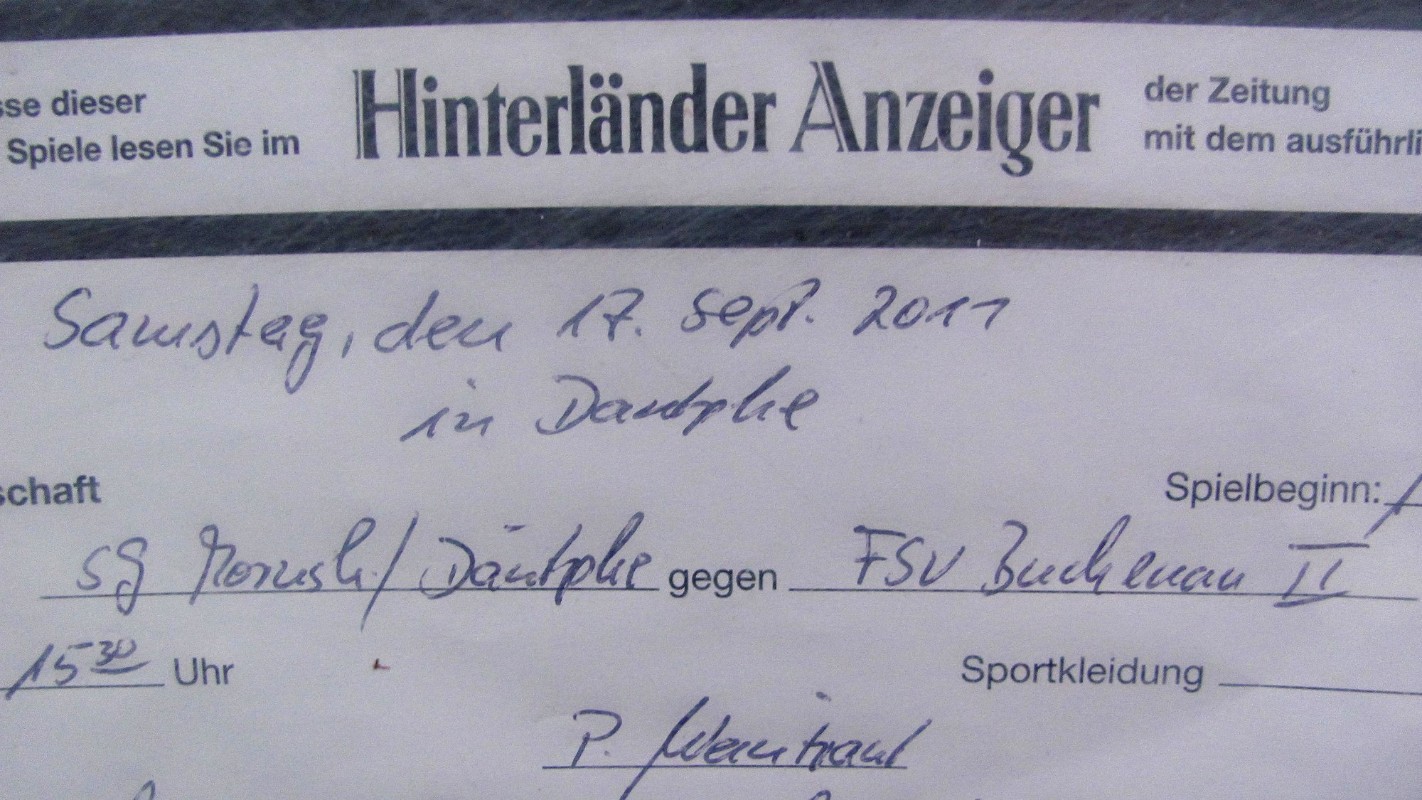 sse dieser
Spiele lesen Sie im
Hinterländer Anzeiger
der Zeitung
mit dem ausführli
Samstag, den 17. Sept. 2011
in Dautphe
schaft
Spielbeginn:
SG / Dautphe gegen FSV Buchenau II
15 30 Uhr
Sportkleidung
P. Weintraut